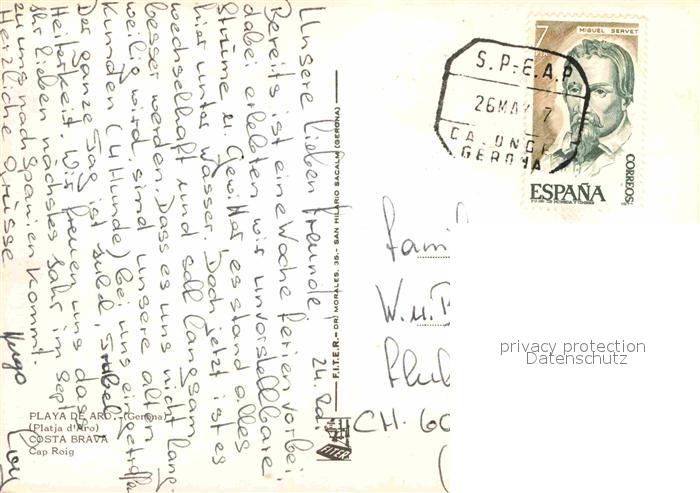 Unsere lieben Freunde,
Bereits ist eine Woche Ferien vorbei,
dabei erlebten wir unvorstellbare
Stürme u. Gewitter, es stand alles
hier unter Wasser. Doch jetzt ist es
wechselhaft und soll langsam
besser werden. Dass es uns nicht lang-
weilig wird, sind unsere alten
Kunden (4 Hunde) bei uns eingetroffen
Der ganze Tag ist
Heiterkeit. Wir freuen uns dass
Ihr lieben nächstes Jahr im Sept.
zu uns nach Spanien kommt.
Herzliche Grüsse
Hugo
PLAYA DE ARO. (Gerona)
(Platja d'Aro)
COSTA BRAVA
Cap Roig
F.I.T.E.R. - DR. MORALES, 36 - SAN HILARIO SACALM (GERONA)
FITER
7
MIGUEL SERVET
CORREOS
ESPAÑA
S.P.E.A.P.
26 MAY 7
GERONA
Fami
W. u.
CH-60
privacy protection
Datenschutz